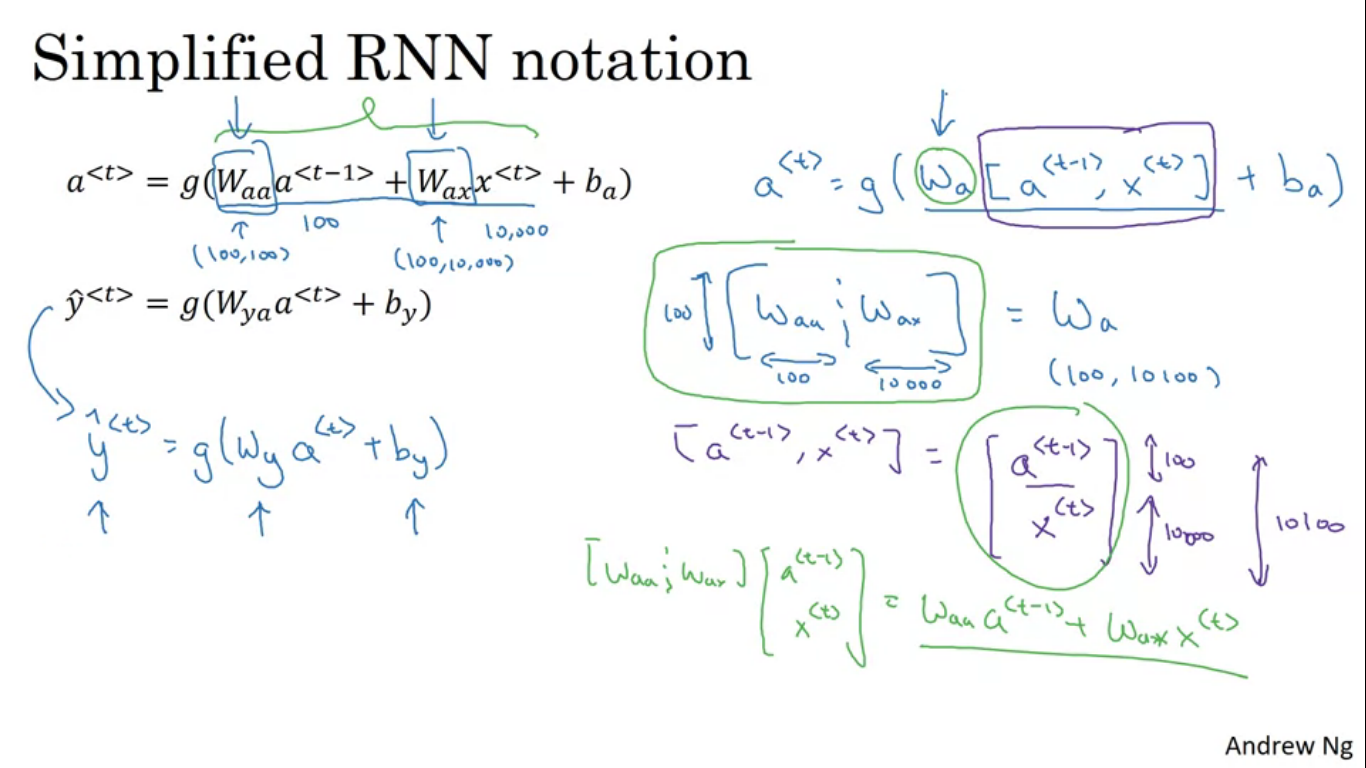 Simplified RNN notation
a<t> = g(Waa a<t−1> + Wax x<t> + ba)
100
10,000
(100,100)
(100,10,000)
ŷ<t> = g(Wya a<t> + by)
ŷ<t> = g(Wy a<t> + by)
a<t> = g(Wa [a<t-1>, x<t>] + ba)
100 [Waa ¦ Wax] = Wa
100
10000
(100, 10100)
[a<t-1>, x<t>] = [a<t-1>
x<t>]
100
10000
10100
[Waa ¦ Wax] [a<t-1>
x<t>] = Waa a<t-1> + Wax x<t>
Andrew Ng